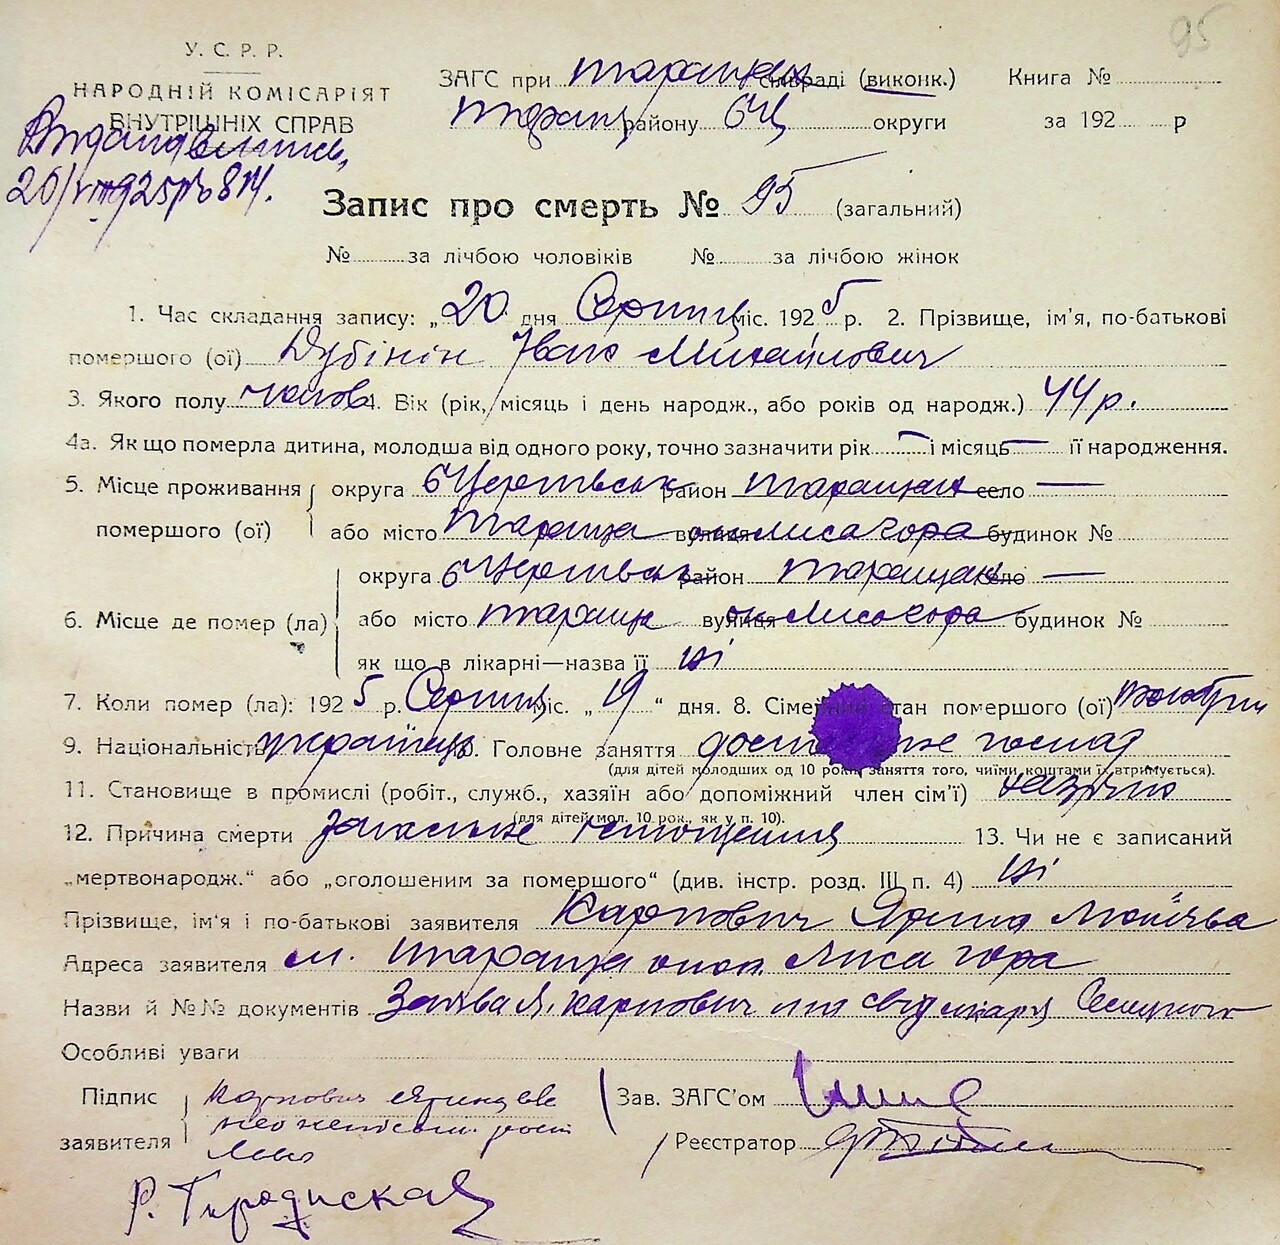 95
У. С. Р. Р.
НАРОДНІЙ КОМІСАРІЯТ
ВНУТРІШНІХ СПРАВ
ЗАГС при Таращан сільраді (виконк.) Книга №
Таращ району БЦ округи за 192 р
26/VIII 925 р № 874.
Запис про смерть № 95 (загальний)
№ за лічбою чоловіків № за лічбою жінок
1. Час складання запису: „20 дня Серпня міс. 1925 р. 2. Прізвище, ім'я, по-батькові
помершого (ої) Дубінін Іван Михайлович
3. Якого полу чолов 4. Вік (рік, місяць і день народж., або років од народж.) 44 р.
4а. Як що померла дитина, молодша від одного року, точно зазначити рік — і місяць — її народження.
5. Місце проживання округа БЦерківськ район Таращан село —
помершого (ої) або місто Тараща вулиця Лиса гора будинок №
округа БЦерківськ район Таращан село —
6. Місце де помер (ла) або місто Тараща вулиця Лиса гора будинок №
як що в лікарні—назва її ні
7. Коли помер (ла): 1925 р. Серпня міс. „19“ дня. 8. Сімейний стан помершого (ої)
9. Національність українець 10. Головне заняття господ
(для дітей молодших од 10 років, заняття того, чиїми коштами їх втримується).
11. Становище в промислі (робіт., служб., хазяїн або допоміжний член сім'ї) хазяїн
(для дітей мол. 10 рок., як у п. 10).
12. Причина смерти 13. Чи не є записаний
„мертвонародж.“ або „оголошеним за помершого“ (див. інстр. розд. III п. 4) ні
Прізвище, ім'я і по-батькові заявителя Карпович Ярина
Адреса заявителя м. Тараща Лиса гора
Назви й №№ документів Заява Я. Карпович та свід лікаря
Особливі уваги
Підпис Карпович Ярина Зав. ЗАГС'ом
заявителя Реєстратор